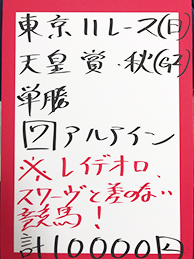 東京11レース(日)
天皇賞・秋(G1)
単勝
7アルアイン
※レイデオロ、
スワーヴと差のない
競馬!
計10000円